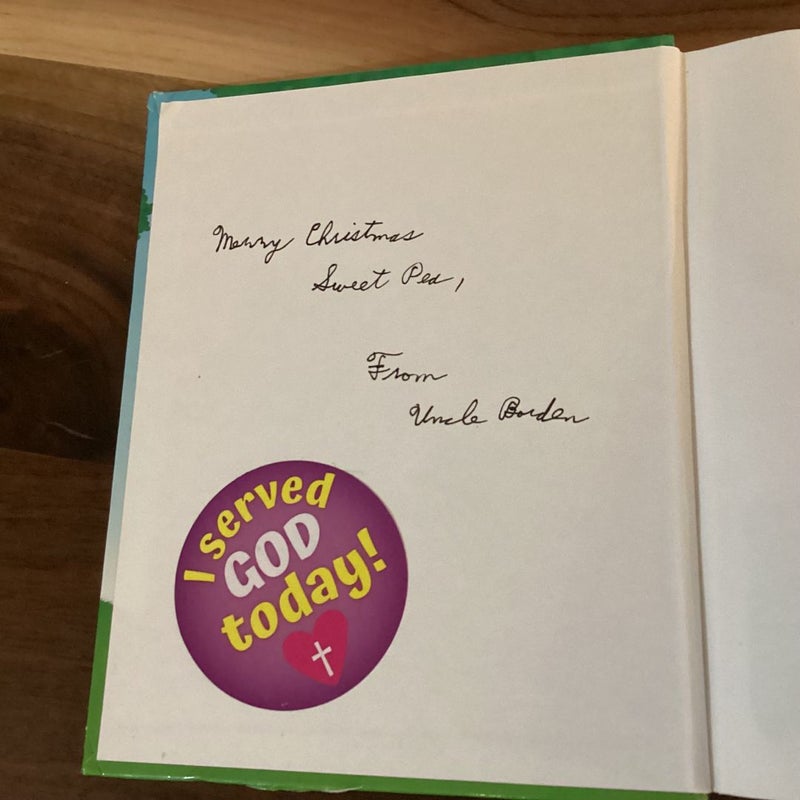 Merry Christmas
Sweet Pea,
From
Uncle Borden
I served
GOD
today!